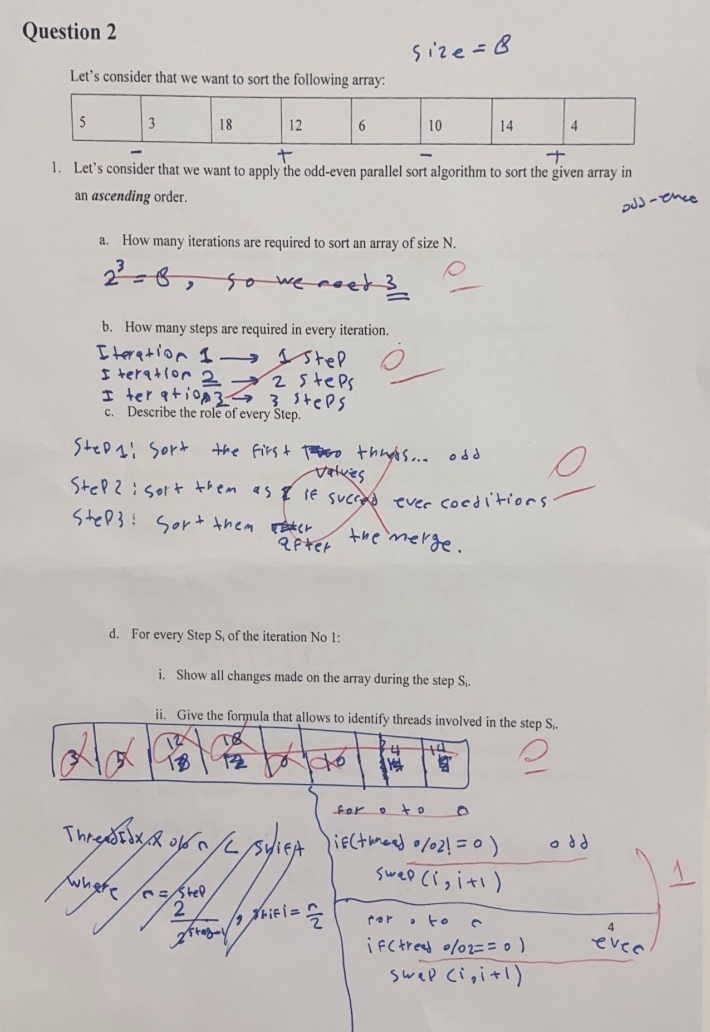 Question 2
size = 8
Let's consider that we want to sort the following array:
5 3 18 12 6 10 14 4
- + - +
1. Let's consider that we want to apply the odd-even parallel sort algorithm to sort the given array in
an ascending order.
odd-
a. How many iterations are required to sort an array of size N.
2³ = 8, so we need 3
0
b. How many steps are required in every iteration.
Iteration 1 → 1 step
Iteration 2 → 2 steps
Iteration 3 → 3 steps
0
c. Describe the role of every Step.
Step 1: Sort the first things... odd
values
Step 2: sort them as if ever conditions
0
Step 3: Sort them
after the merge.
d. For every Step Sᵢ of the iteration No 1:
i. Show all changes made on the array during the step Sᵢ.
ii. Give the formula that allows to identify threads involved in the step Sᵢ.
3 5 12 18 6 10 4 14
0
for 0 to n
ThreadIdx.x % n < Shift
if(thread %2!=0) odd
swap(i,i+1)
1
where n = step
2
, shift = n/2
for 0 to n
4
if(tread %2==0) even
swap(i,i+1)